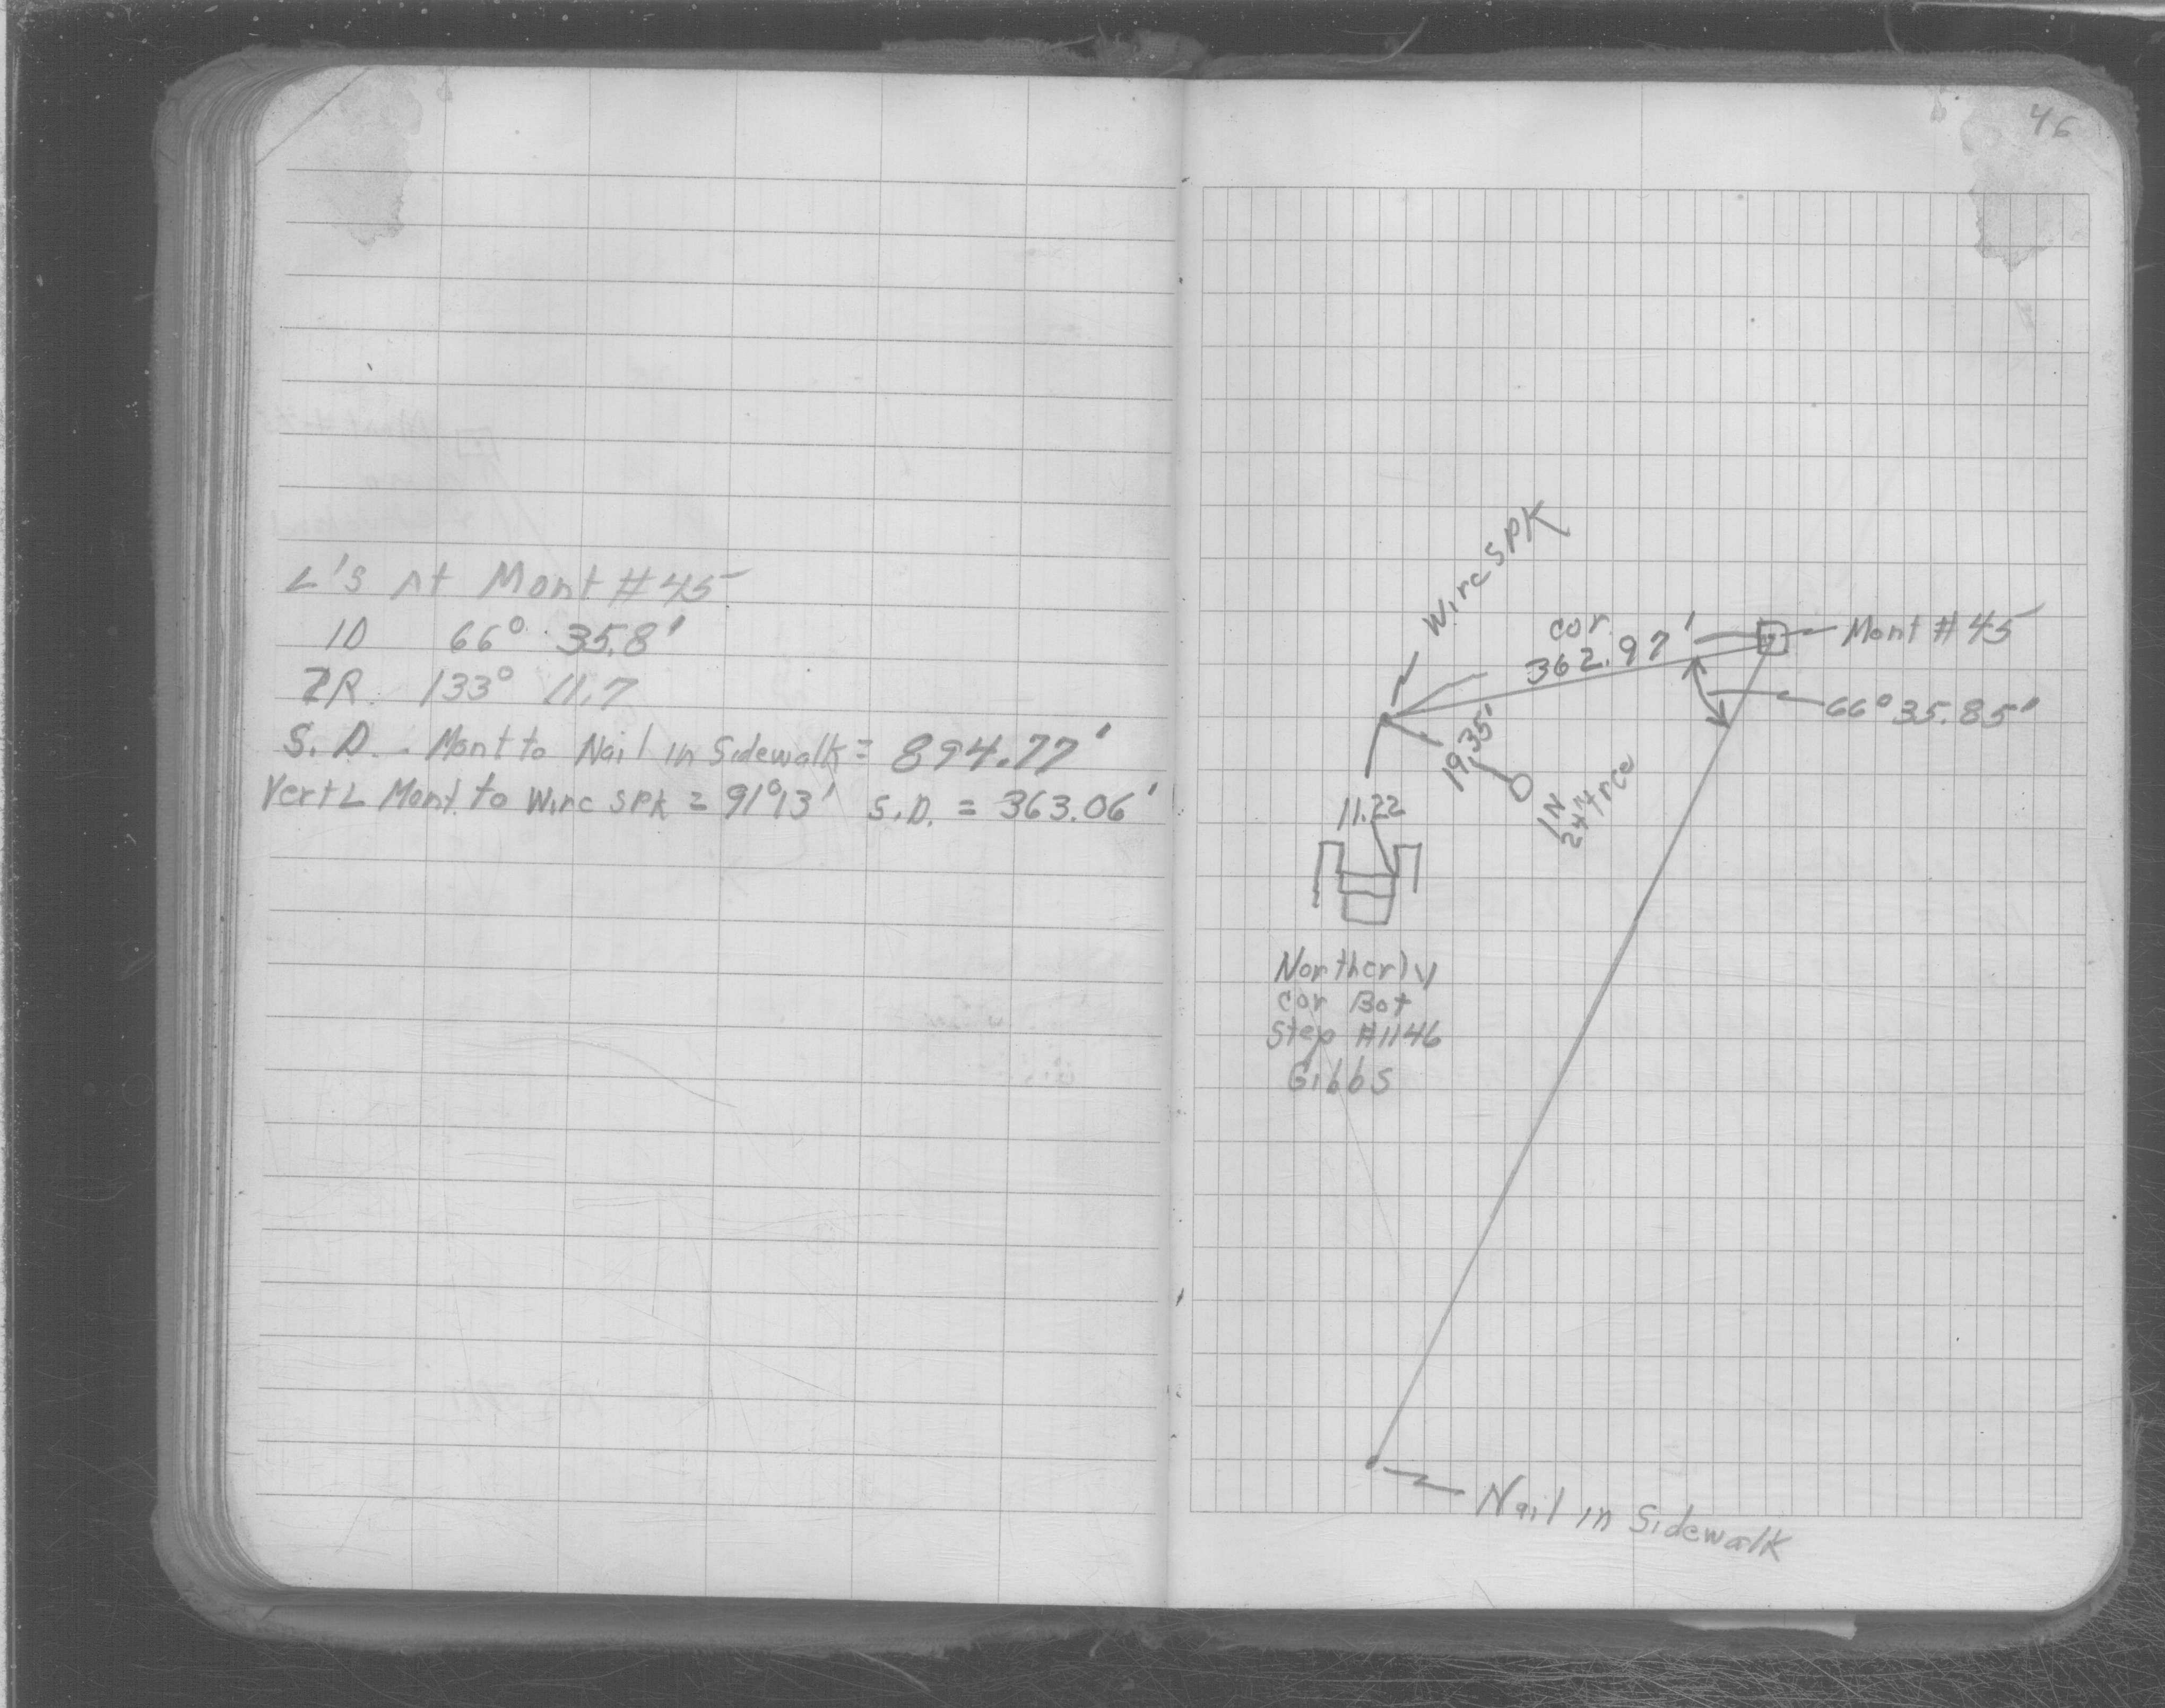 ∠'S At Mont #45
1D 66° 35.8'
2R 133° 11.7
S.D. Mont to Nail in Sidewalk = 894.77'
Vert ∠ Mont. to Wire SPK = 91°13' S.D. = 363.06'
46
Wire SPK
cor
362.97'
Mont #45
66° 35.85'
19.35'
IN
24" tree
11.22
Northerly
cor Bot
Step #1146
Gibbs
Nail in Sidewalk